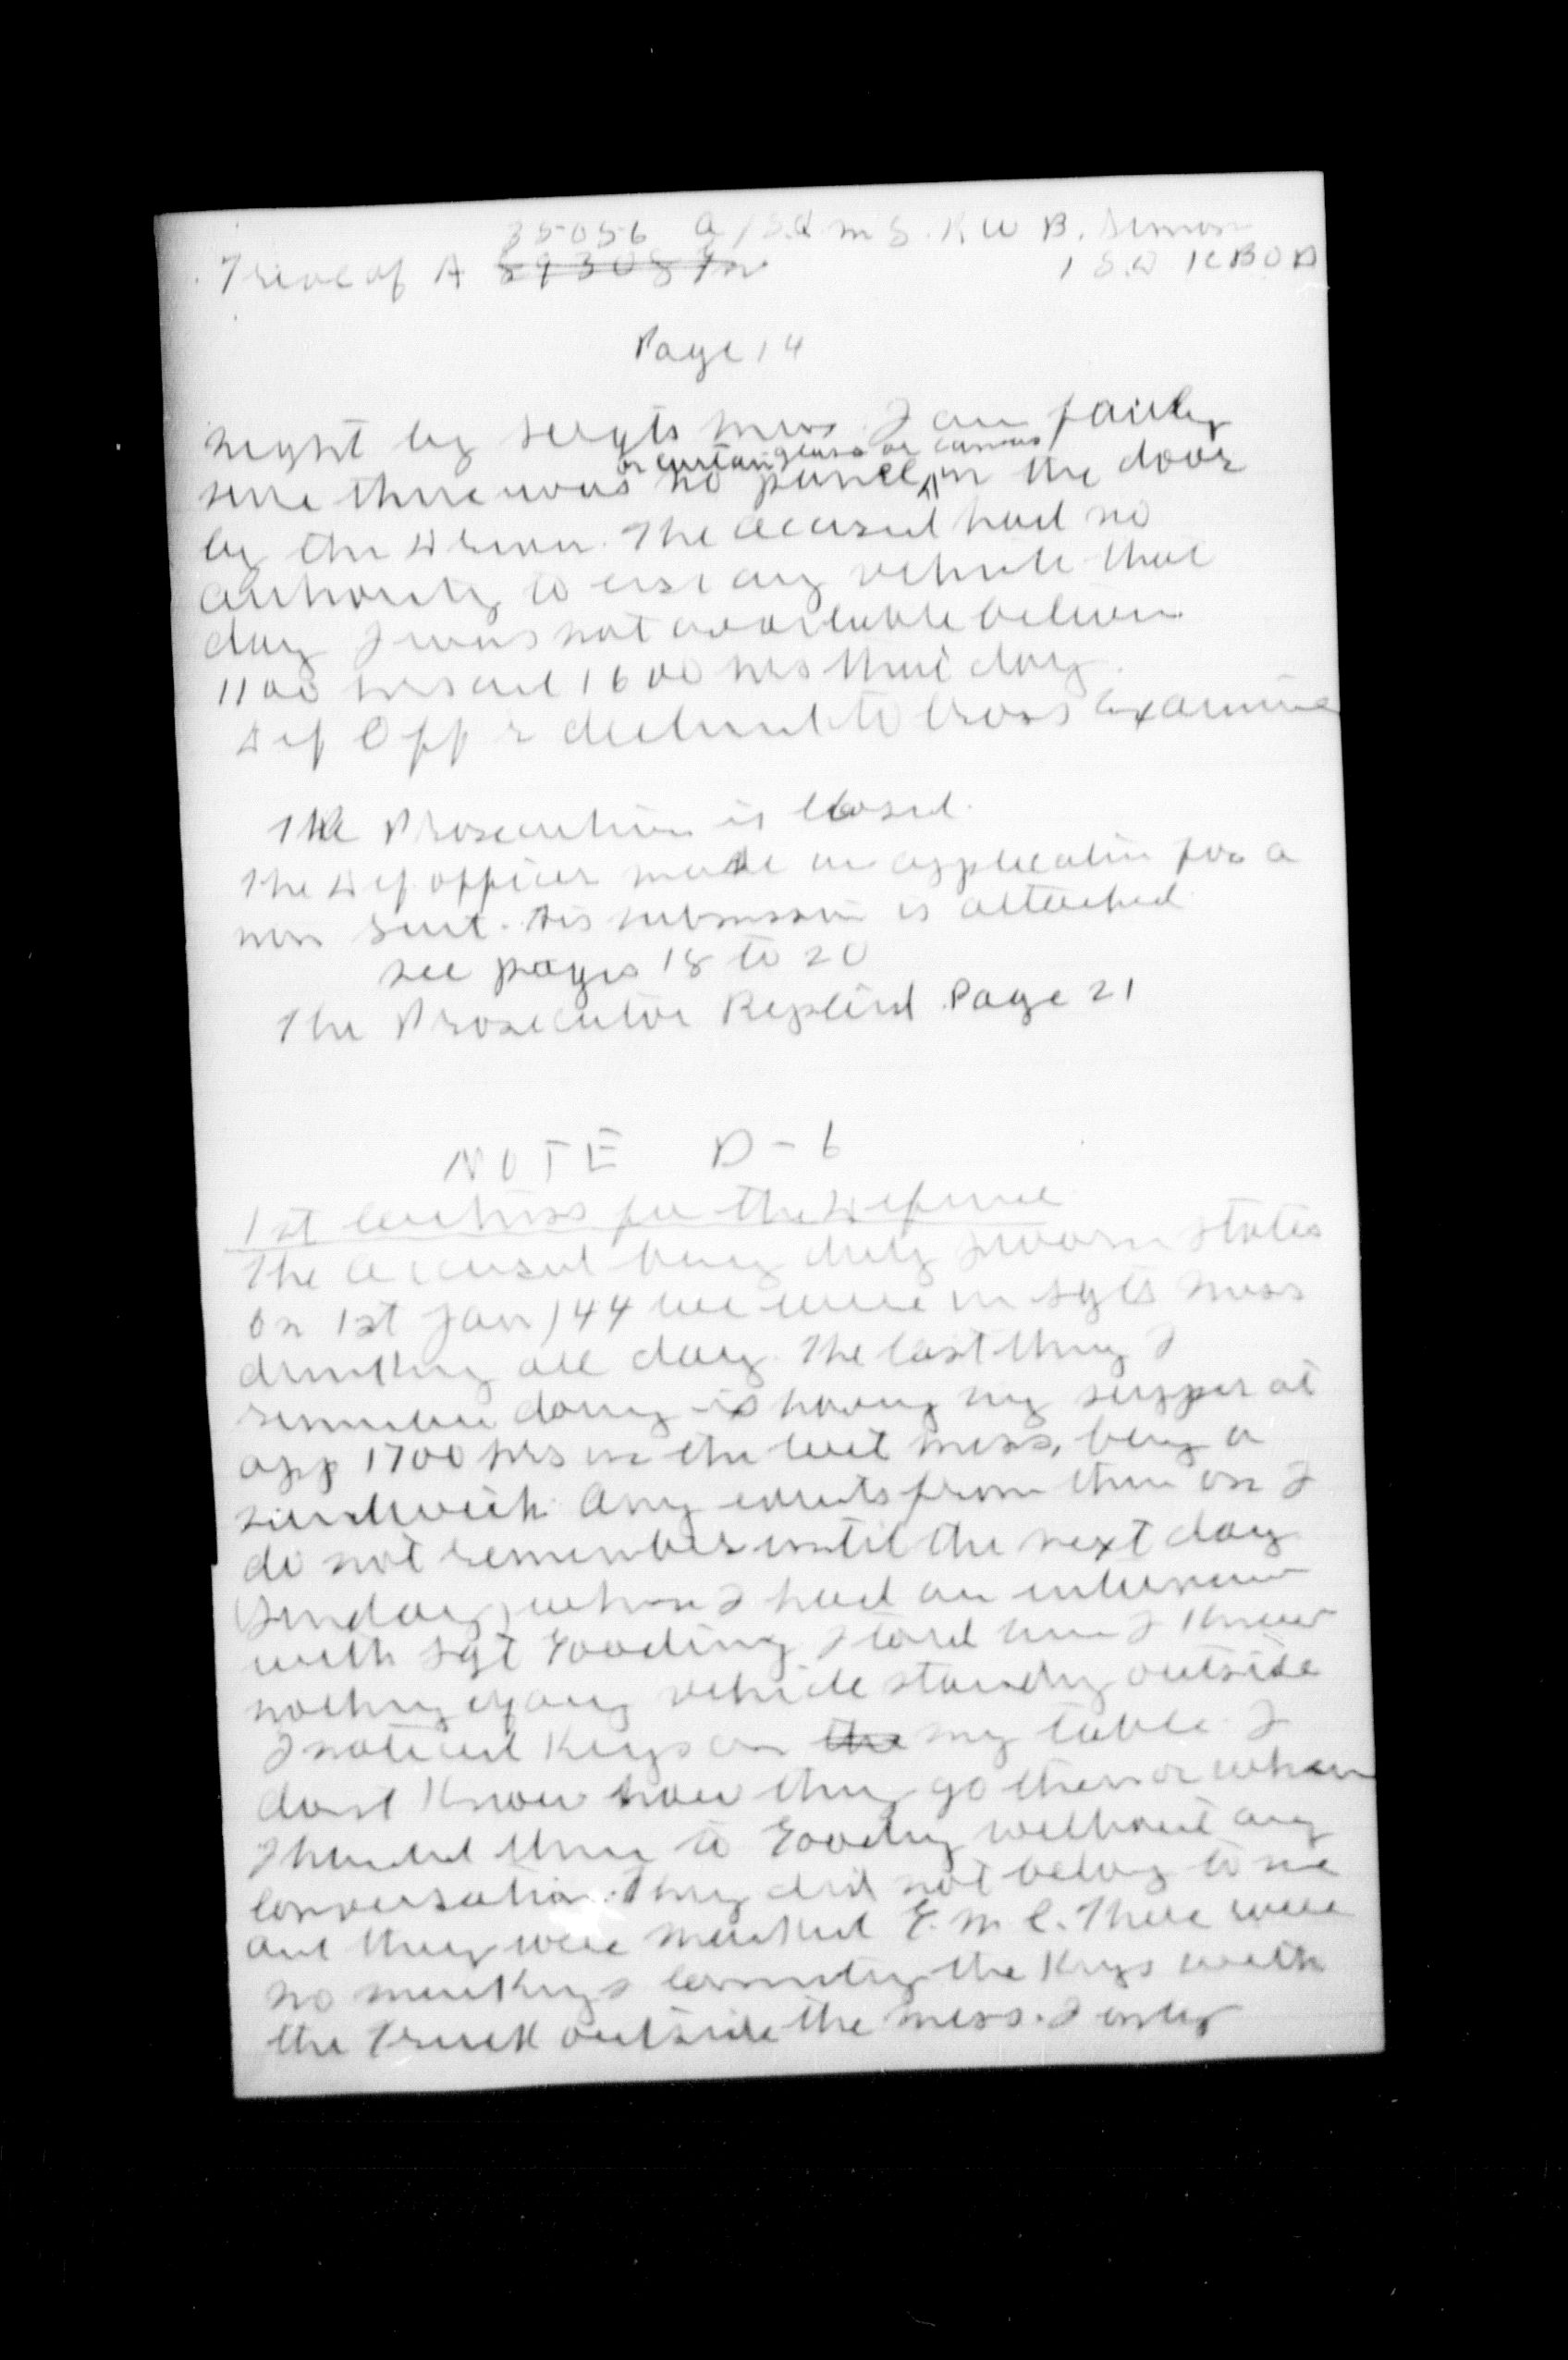 35056 A/S.Q.M.S. K W B.
Trial of A 89308 Gnr 1 S.D K B O D
Page 14
night by sergts mess. I am fairly
or curtain glass or canvas
sure there was no panel in the door
by the Driver. The accused had no
authority to use any vehicle that
day I was not available between
1100 hrs and 1600 hrs that day.
Def Offr declined to cross examine
The Prosecution is closed.
The Def officer made an application for a
non suit. His submission is attached
see pages 18 to 20
The Prosecutor Replied Page 21
NOTE D-6
1st witness for the Defence
The accused being duly sworn states
On 1st Jan/44 we were in sgts mess
drinking all day. The last thing I
remember doing is having my supper at
app 1700 hrs in the mess, being a
sandwich. Any events from then on I
do not remember until the next day
Sunday, when I had an interview
with Sgt Gooding I told him I knew
nothing of any vehicle standing outside
I noticed Keys on the my table I
dont Know how they go there or when
I handed them to Gooding without any
conversation. They did not belong to me
and they were marked G.M.C. There were
no markings connecting the Keys with
the Truck outside the mess. I only